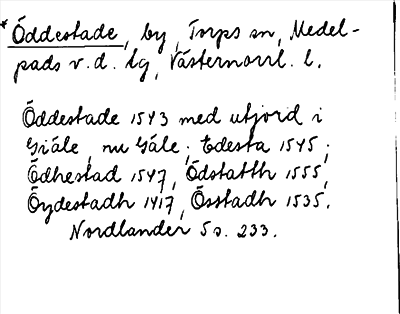 * Öddestade, by, Torps sn, Medel-
pads v.d. tg, Västernorrl. l.
Öddestade 1543 med utjord i
Giåle, nu Gåle; Edesta 1545;
Ödhestad 1547, Ödstatth 1555,
Öydestadh 1417, Össtadh 1535.
Nordlander 5 s. 233.